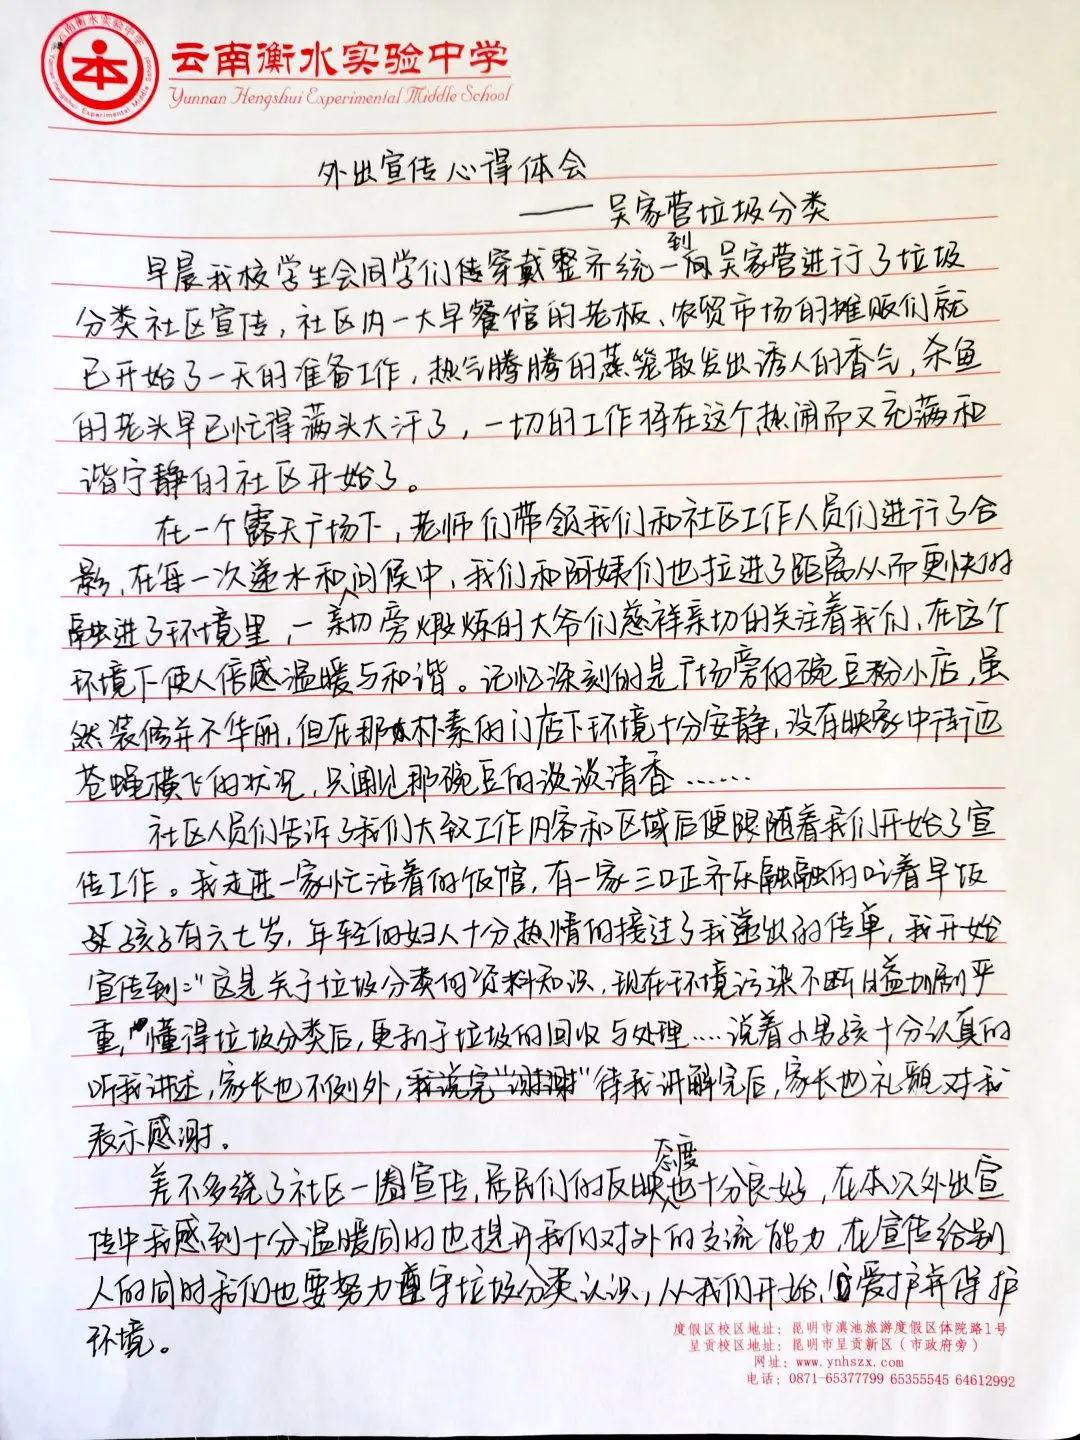 云南衡水实验中学
Yunnan Hengshui Experimental Middle School
外出宣传心得体会
——吴家营垃圾分类
早晨我校学生会同学们穿戴整齐统一到吴家营进行了垃圾
分类社区宣传，社区内一大早餐馆的老板、农贸市场的摊贩们就
已开始了一天的准备工作，热气腾腾的蒸笼散发出诱人的香气，杀鱼
的老头早已忙得满头大汗了，一切的工作将在这个热闹而又充满和
谐宁静的社区开始了。
在一个露天广场下，老师们带领我们和社区工作人员们进行了合
影，在每一次递水和问候中，我们和阿姨们也拉进了距离从而更快的
融进了环境里，一旁煅炼的大爷们慈祥亲切的关注着我们，在这个
环境下使人倍感温暖与和谐。记忆深刻的是广场旁的碗豆粉小店，虽
然装修并不华丽，但在那朴素的门店下环境十分安静，没有映象中街边
苍蝇横飞的状况，只闻见那碗豆的淡淡清香……
社区人员们告诉了我们大致工作内容和区域后便跟随着我们开始了宣
传工作。我走进一家忙活着的饭馆，有一家三口正齐乐融融的吃着早饭
孩子有六七岁，年轻的妇人十分热情的接过了我递出的传单，我开始
宣传到：“这是关于垃圾分类的资料知识，现在环境污染不断日益加剧严
重，懂得垃圾分类后，更利于垃圾的回收与处理……说着小男孩十分认真的
听我讲述，家长也不例外，待我讲解完后，家长也礼貌对我
表示感谢。
差不多绕了社区一圈宣传，居民们的反映态度也十分良好，在本次外出宣
传中我感到十分温暖同时也提升我们对外的交流能力，在宣传给别
人的同时我们也要努力遵守垃圾分类认识，从我们开始，爱护并保护
环境。
度假区校区地址：昆明市滇池旅游度假区体院路1号
呈贡校区地址：昆明市呈贡新区（市政府旁）
网址：www.ynhszx.com
电话：0871-65377799 65355545 64612992